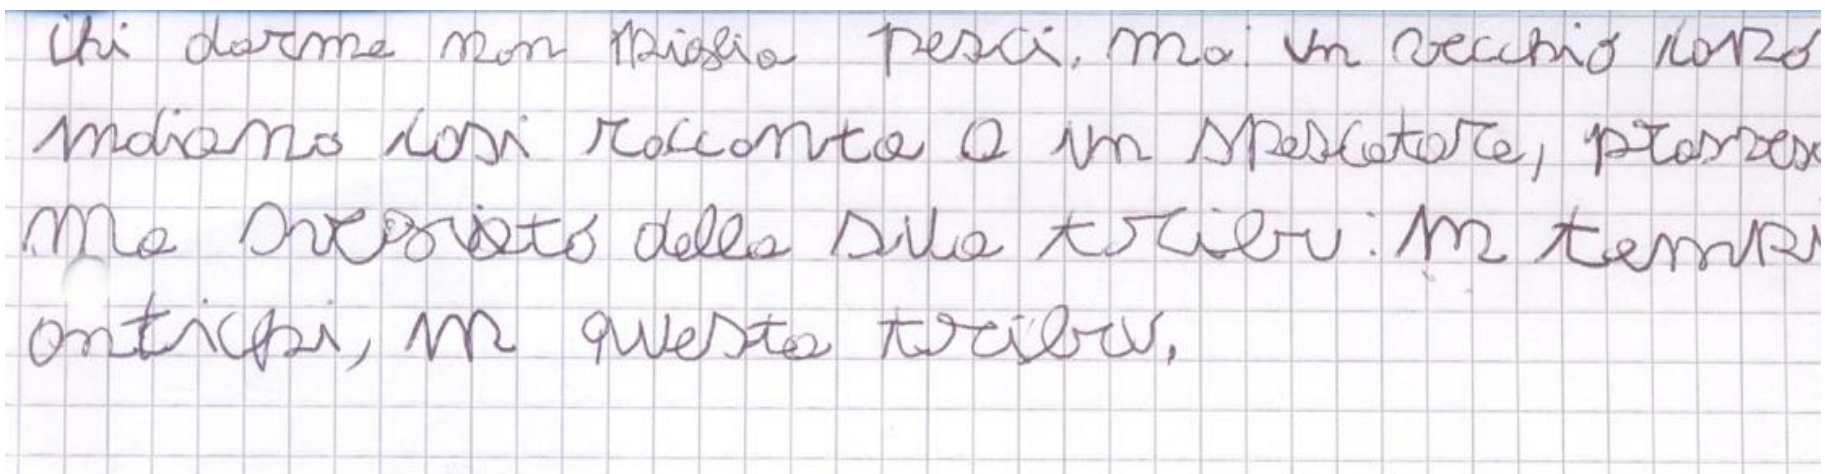 Chi dorme non piglia pesci. ma un vecchio capo
indiano cosi racconta a un spescatore,
della sua tribu: in tempi
antichi, in questa tribu.